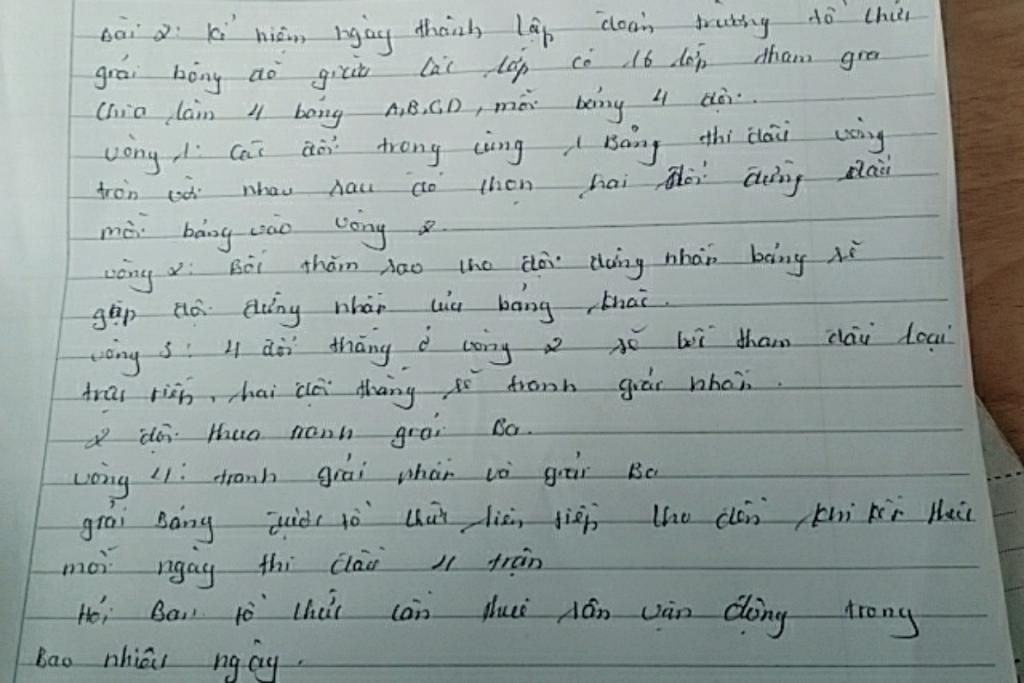 Bài 2: Kỉ niệm ngày thành lập đoàn trường tổ chức
giải bóng đá giữa các lớp có 16 lớp tham gia
chia làm 4 bảng A,B,C,D, mỗi bảng 4 đội.
vòng 1: Các đội trong cùng 1 Bảng thi đấu vòng
tròn với nhau sau đó chọn hai đội đứng đầu
mỗi bảng vào vòng 2.
vòng 2: Bốc thăm sao cho đội đứng nhất bảng sẽ
gặp đội đứng nhất của bảng khác.
vòng 3: 4 đội thắng ở vòng 2 sẽ bốc tham đấu loại
trực tiếp, hai đội thắng sẽ tranh giải nhất.
2 đội thua tranh giải Ba.
vòng 4: tranh giải nhất và giải Ba
giải Bóng được tổ chức liên tiếp cho đến khi kết thúc
mỗi ngày thi đấu 4 trận
Hỏi Ban tổ chức cần thuê sân vận động trong
Bao nhiêu ngày.